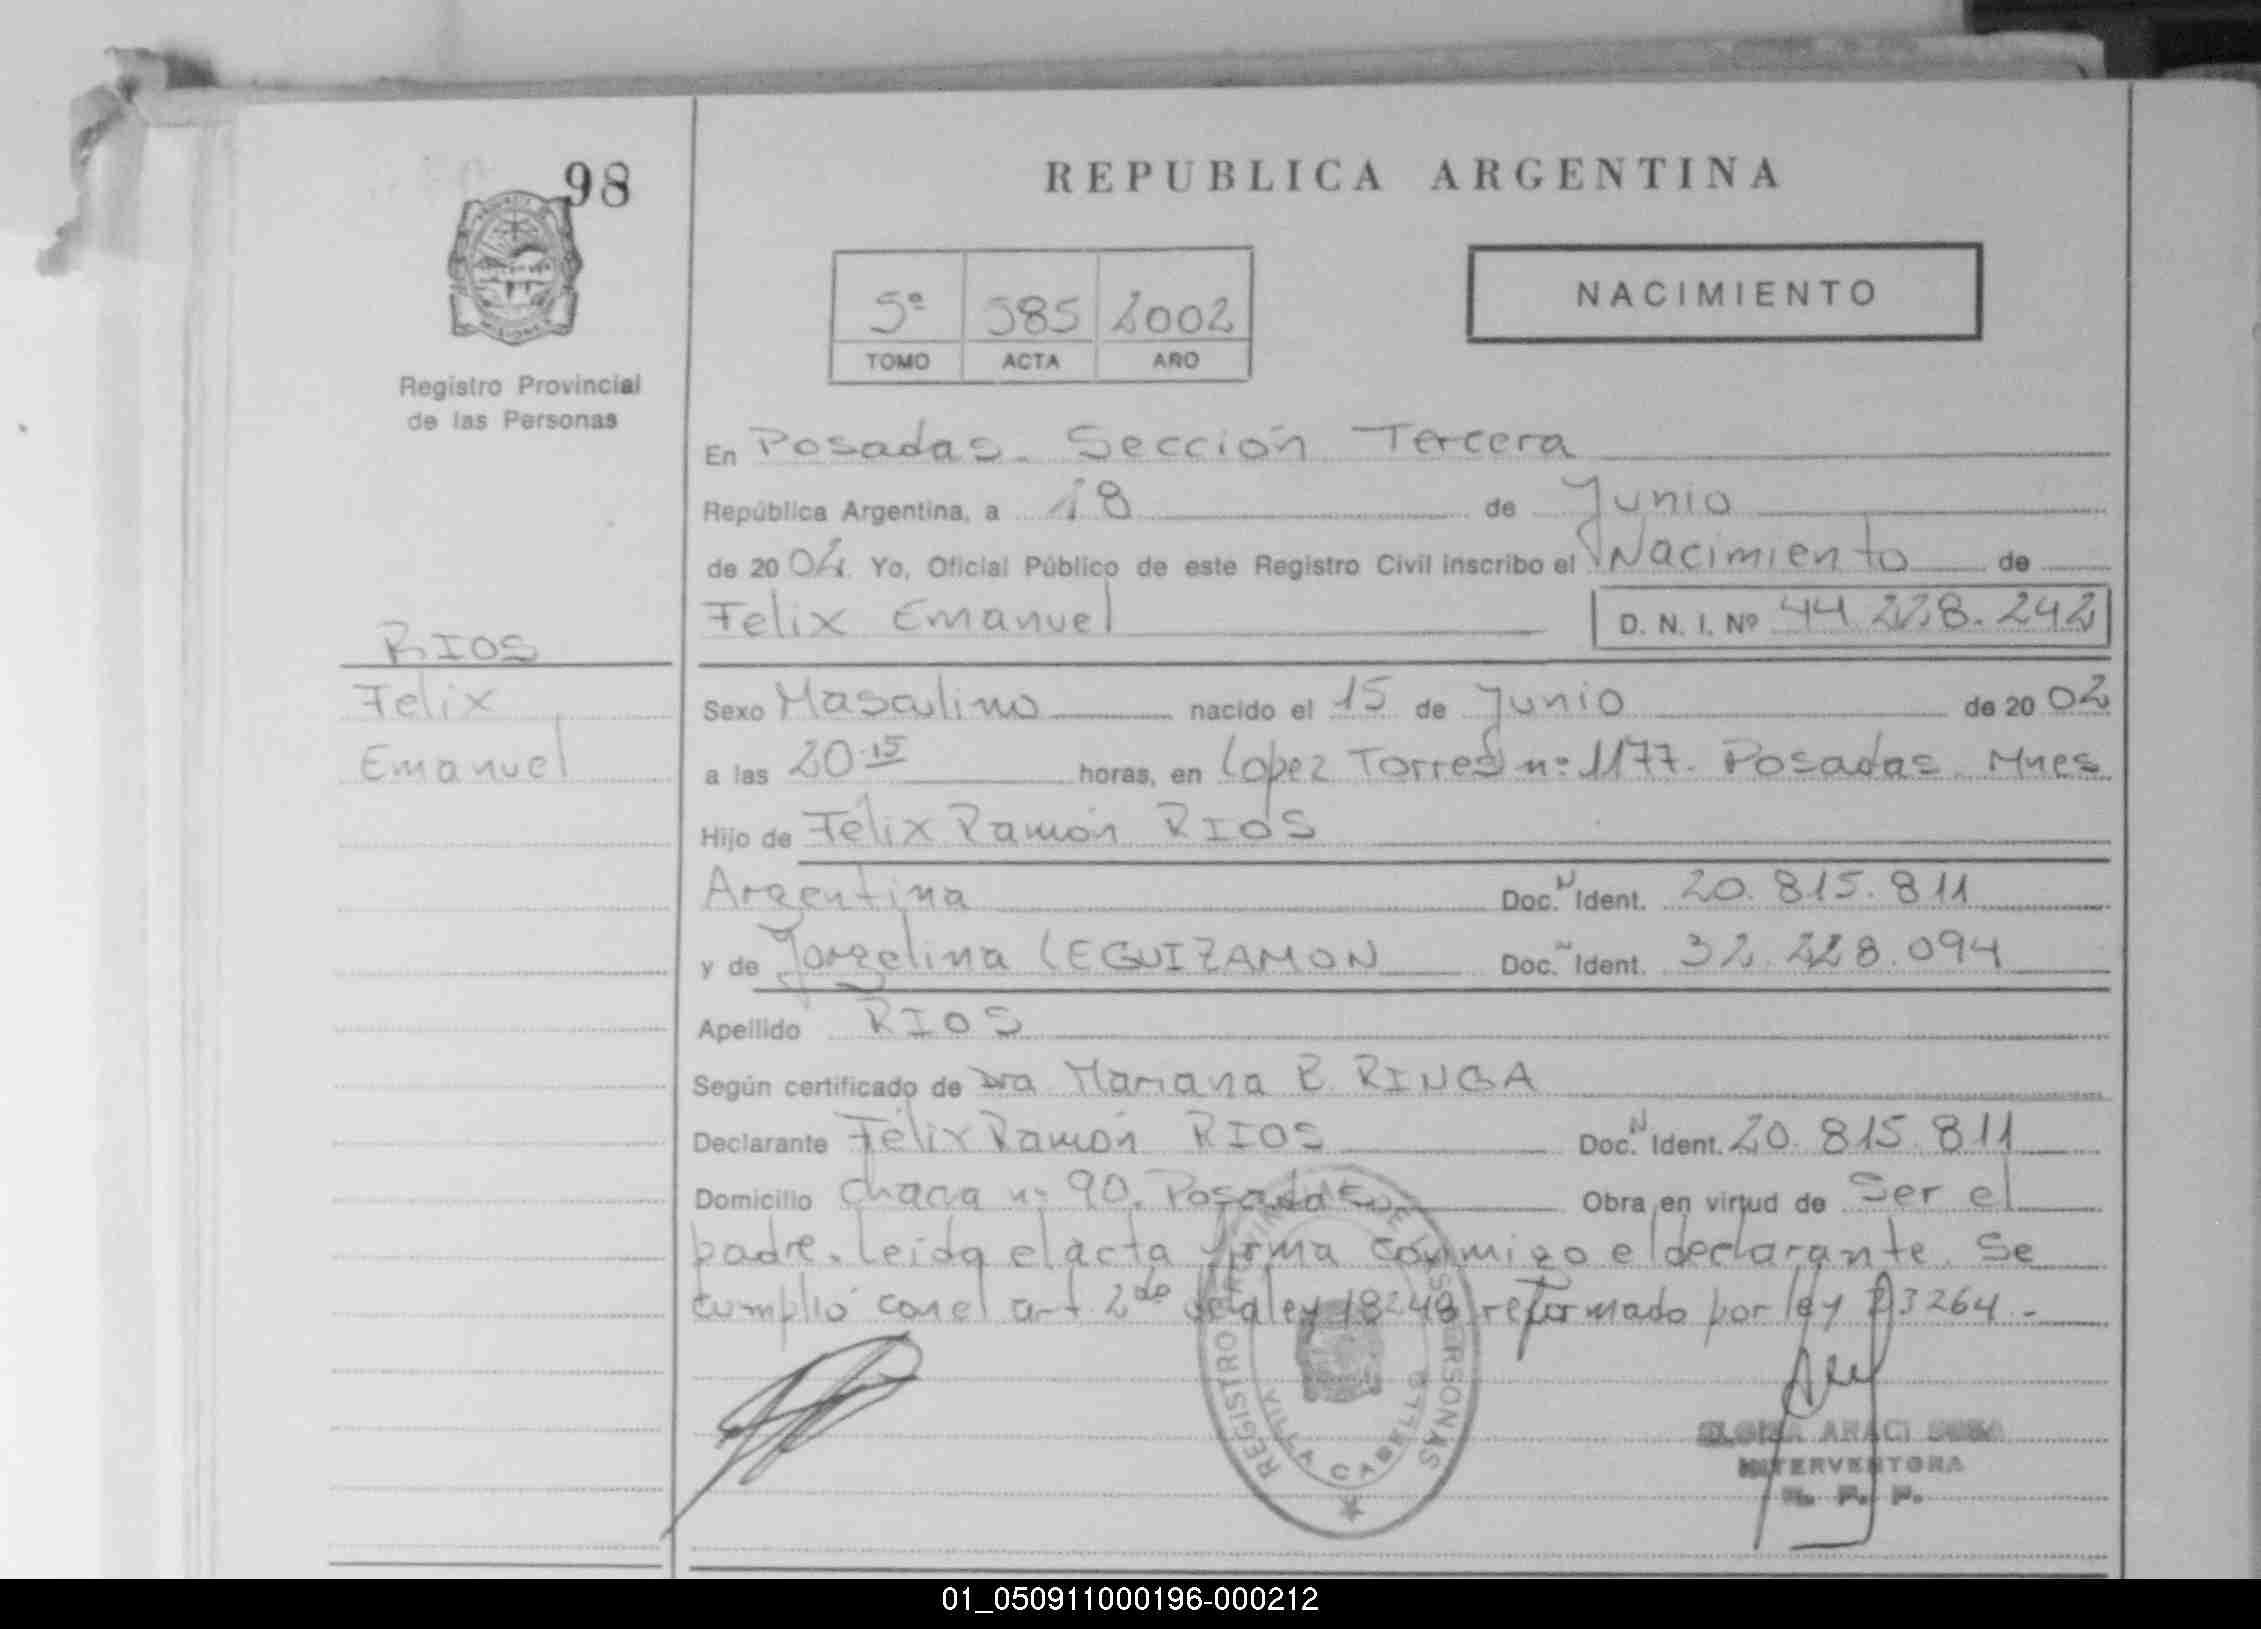 98
REPUBLICA ARGENTINA
NACIMIENTO
5º 585 2002
TOMO ACTA AÑO
Registro Provincial
de las Personas
En Posadas. Sección Tercera
República Argentina, a 18 de Junio
de 2002. Yo, Oficial Público de este Registro Civil inscribo el Nacimiento de
Felix Emanuel D. N. I. Nº 44.228.242
RIOS
Felix
Emanuel
Sexo Masculino nacido el 15 de Junio de 2002
a las 20.15 horas, en Lopez Torres nº 1177. Posadas. Mnes
Hijo de Félix Ramón RIOS
Argentina Doc. N Ident. 20.815.811
y de Jorgelina LEGUIZAMON Doc. N Ident. 32.228.094
Apellido RIOS
Según certificado de Dra Mariana B. RINGA
Declarante Félix Ramón RIOS Doc. N Ident. 20.815.811
Domicilio Chacra nº 90. Posadas Obra en virtud de Ser el
padre. Leida el acta firma conmigo el declarante. Se
cumplió con el art. 2do de la ley 18248 reformado por ley 23264.-
REGISTRO PROVINCIAL DE LAS PERSONAS
VILLA CABELLO
ARACI SOSA
INTERVENTORA
R. P. P.
01_050911000196-000212